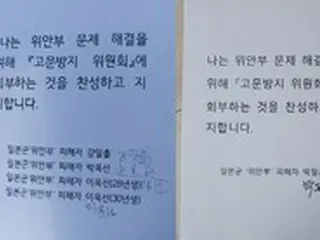 나는 위안부 문제 해결을
위해 『고문방지 위원회』에
회부하는 것을 찬성하고 지
지합니다.
일본군'위안부' 피해자 강일출
일본군'위안부' 피해자 박옥선
일본군'위안부' 피해자 이옥선(28년생)
일본군'위안부' 피해자 이옥선(30년생)
나는 위안부 문제
위해 『고문방지 위원회
회부하는 것을 찬성하
지합니다.
일본군 '위안부' 피해자